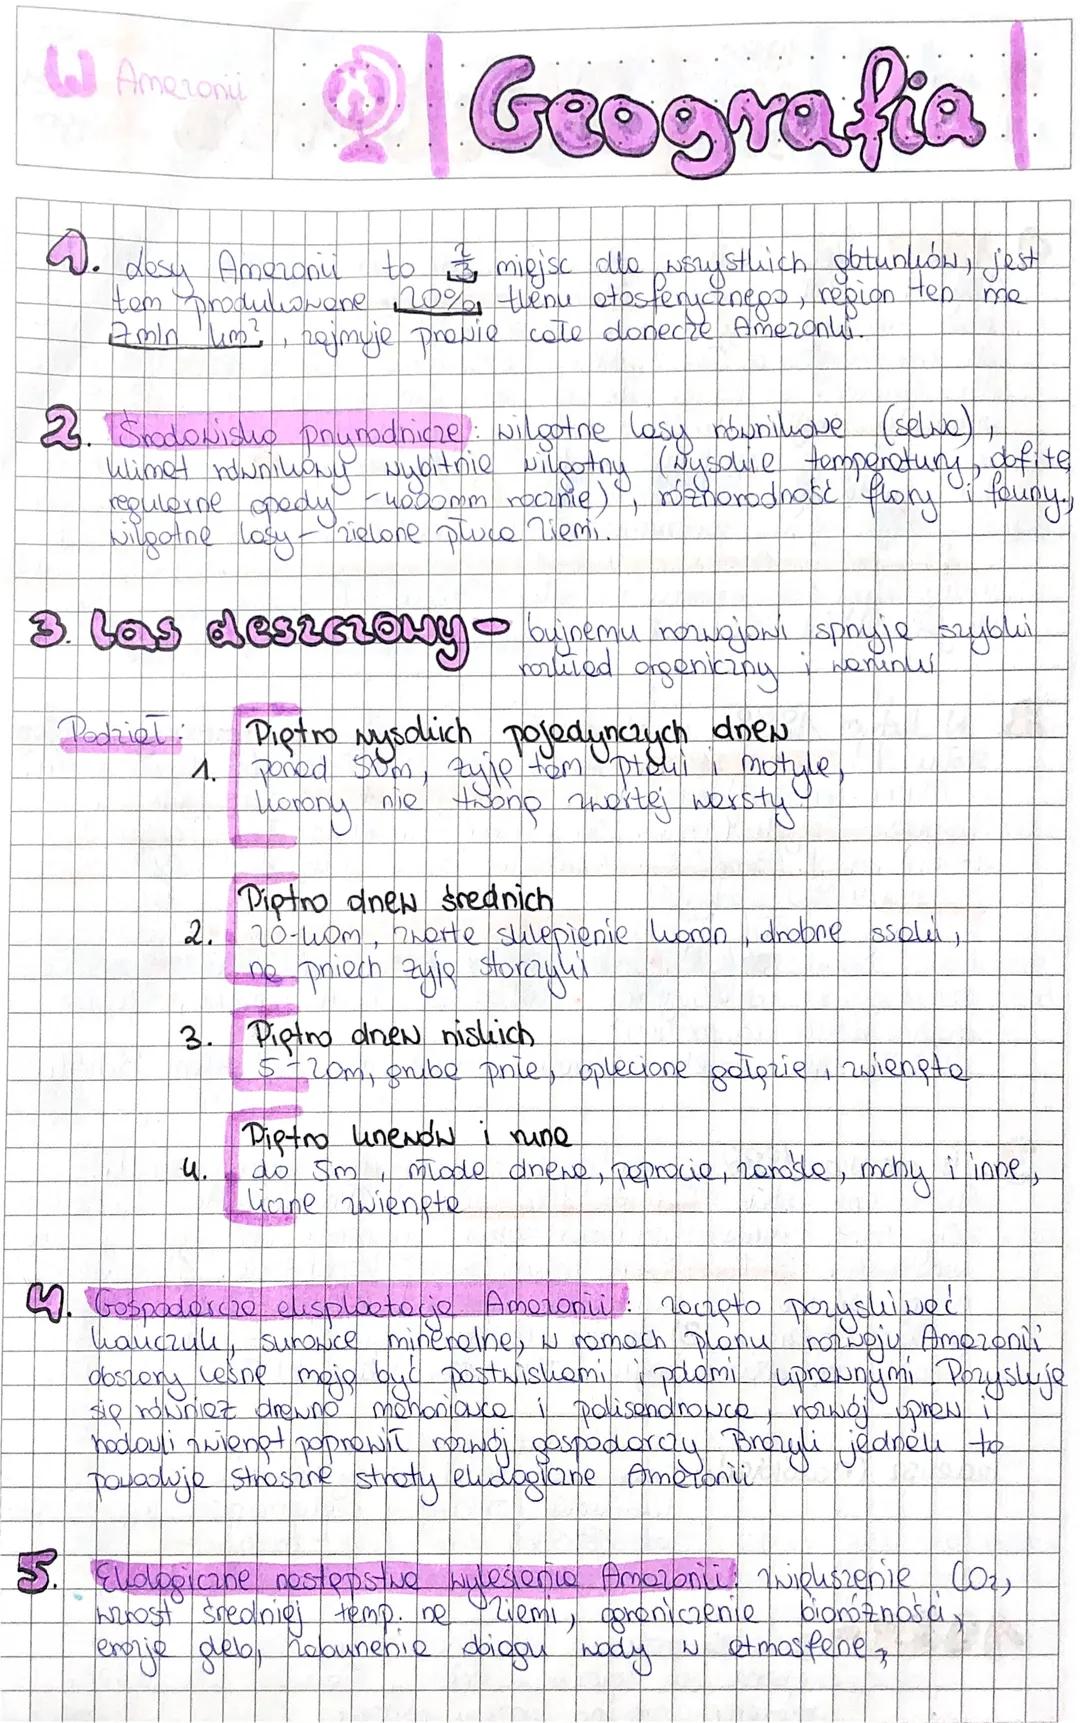 W Amazonii
Geografia
1. Lasy Amazonii to 2/3 miejsc dla wszystkich gatunków, jest
tam produkowane 20% tlenu atosferycznego, region ten ma
7mln km², zajmuje prawie całe dorzecze Amazonki.
2. Środowisko przyrodnicze: wilgotne lasy równikowe (selwa),
klimat równikowy wybitnie wilgotny (wysokie temperatury, obfite
regularne opady - 4000mm rocznie), różnorodność flory i fauny,
wilgotne lasy - zielone płuca Ziemi.
3. Las deszczowy - bujnemu rozwojowi sprzyja szybki
rozkład organiczny i warunki
Podział:
Piętro wysokich pojedynczych drzew
1. ponad 50m, żyją tam ptaki i motyle,
korony nie tworzą zwartej warsty
Piętro drzew średnich
2. 20-40m, zwarte sklepienie koron, drobne ssaki,
na pniach żyją storczyki
3. Piętro drzew niskich
5-20m, grube pnie, oplecione gałęzie, zwierzęta
Piętro krzewów i runa
4. do 5m, młode drzewa, paprocie, zarośla, mchy i inne,
liczne zwierzęta
4. Gospodarcza eksploatacja Amazonii: zaczęto pozyskiwać
kauczuk, surowce mineralne, w ramach planu rozwoju Amazonii
obszary leśne mają być pastwiskami i polami uprawnymi. Pozyskuje
się również drewno mahoniowca i palisandrowca, rozwój upraw i
hodowli zwierząt poprawił rozwój gospodarczy Brazyli jednak to
powoduje straszne straty ekologiczne Amazonii
5. Ekologiczne następstwa wylesienia Amazonii: zwiększenie CO2,
wzrost średniej temp. na Ziemi, ograniczenie bioróżności,
erozja gleb, zaburzenie obiegu wody w atmosferze,